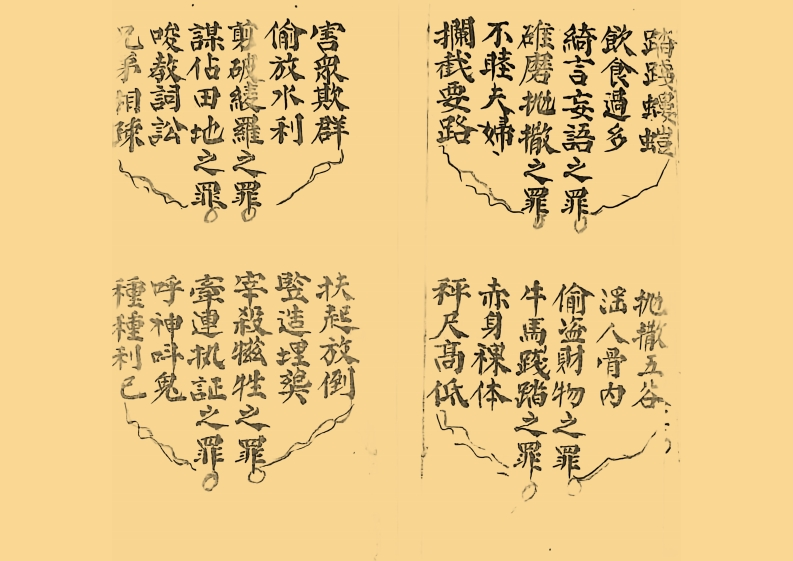 踏踐螻螘
飲食過多
綺言妄語之罪
碓磨抛撒之罪
不睦夫婦
攔截要路
害衆欺群
偷放水利
剪破綾羅之罪
謀佔田地之罪
唆教詞訟
兄弟相陳
抛撒五谷
人骨肉
偷盗財物之罪
牛馬踐踏之罪
赤身裸体
秤尺髙低
扶起放倒
竪造埋葬
宰殺犠牲之罪
牽連扳証之罪
呼神呌鬼
種種利己